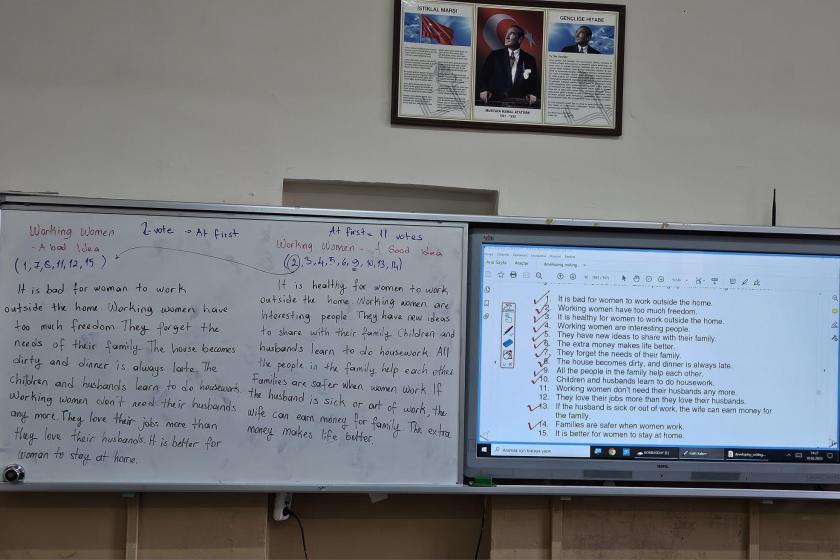 İSTİKLAL MARŞI
GENÇLİĞE HİTABE
MUSTAFA KEMAL ATATÜRK
1881 - 1938
Working Women
- A bad Idea
2 vote → At first
(1,7,8,11,12,15)
It is bad for woman to work
outside the home. Working women have
too much freedom. They forget the
needs of their family. The house becomes
dirty and dinner is always late. The
children and husbands learn to do housework.
Working women don't need their husbands
any more. They love their jobs more than
they love their husbands. It is better for
woman to stay at home.
At first = 11 votes
Working Women - A Good idea
((2),3,4,5,6,9,10,13,14)
It is healthy for women to work
outside the home. Working women are
interesting people. They have new ideas
to share with their family. Children and
husbands learn to do housework. All
the people in the family help each other
Families are safer when women work. If
the husband is sick or art of work, the
wife can earn money for family. The extra
money makes life better.
Ana Sayfa Araçlar
1. It is bad for women to work outside the home.
2. Working women have too much freedom.
3. It is healthy for women to work outside the home.
4. Working women are interesting people.
5. They have new ideas to share with their family.
6. The extra money makes life better.
7. They forget the needs of their family.
8. The house becomes dirty, and dinner is always late.
9. All the people in the family help each other.
10. Children and husbands learn to do housework.
11. Working women don't need their husbands any more.
12. They love their jobs more than they love their husbands.
13. If the husband is sick or out of work, the wife can earn money for
the family.
14. Families are safer when women work.
15. It is better for women to stay at home.
Aramak için buraya yazın